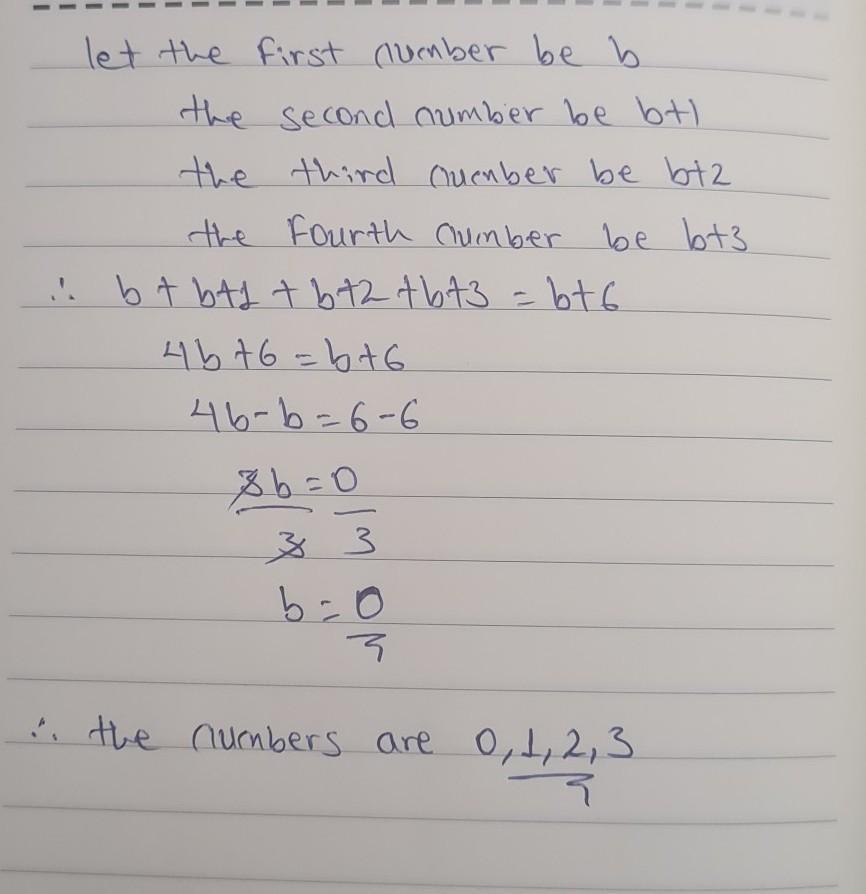 let the first number be b
the second number be b+1
the third number be b+2
the fourth number be b+3
∴ b + b+1 + b+2 +b+3 = b+6
4b+6 = b+6
4b-b = 6-6
3b = 0
3 3
b = 0
∴ the numbers are 0,1,2,3